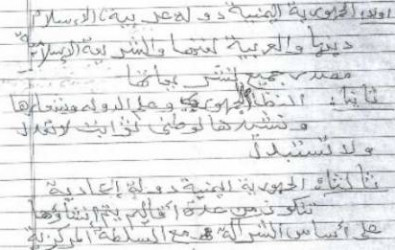 اولا: الجمهورية اليمنية دولة عربية، الإسلام
دينها والعربية لغتها والشريعة الإسلامية
مصدر جميع التشريعات
ثانيا: النظام الجمهوري وعلم الدولة وشعارها
ونشيدها الوطني ثوابت لا تعدل
ولا تستبدل
ثالثا: الجمهورية اليمنية دولة إتحادية
تتكون من عدة أقاليم يتم إنشاؤها
على أساس الشراكة مع السلطة المركزية